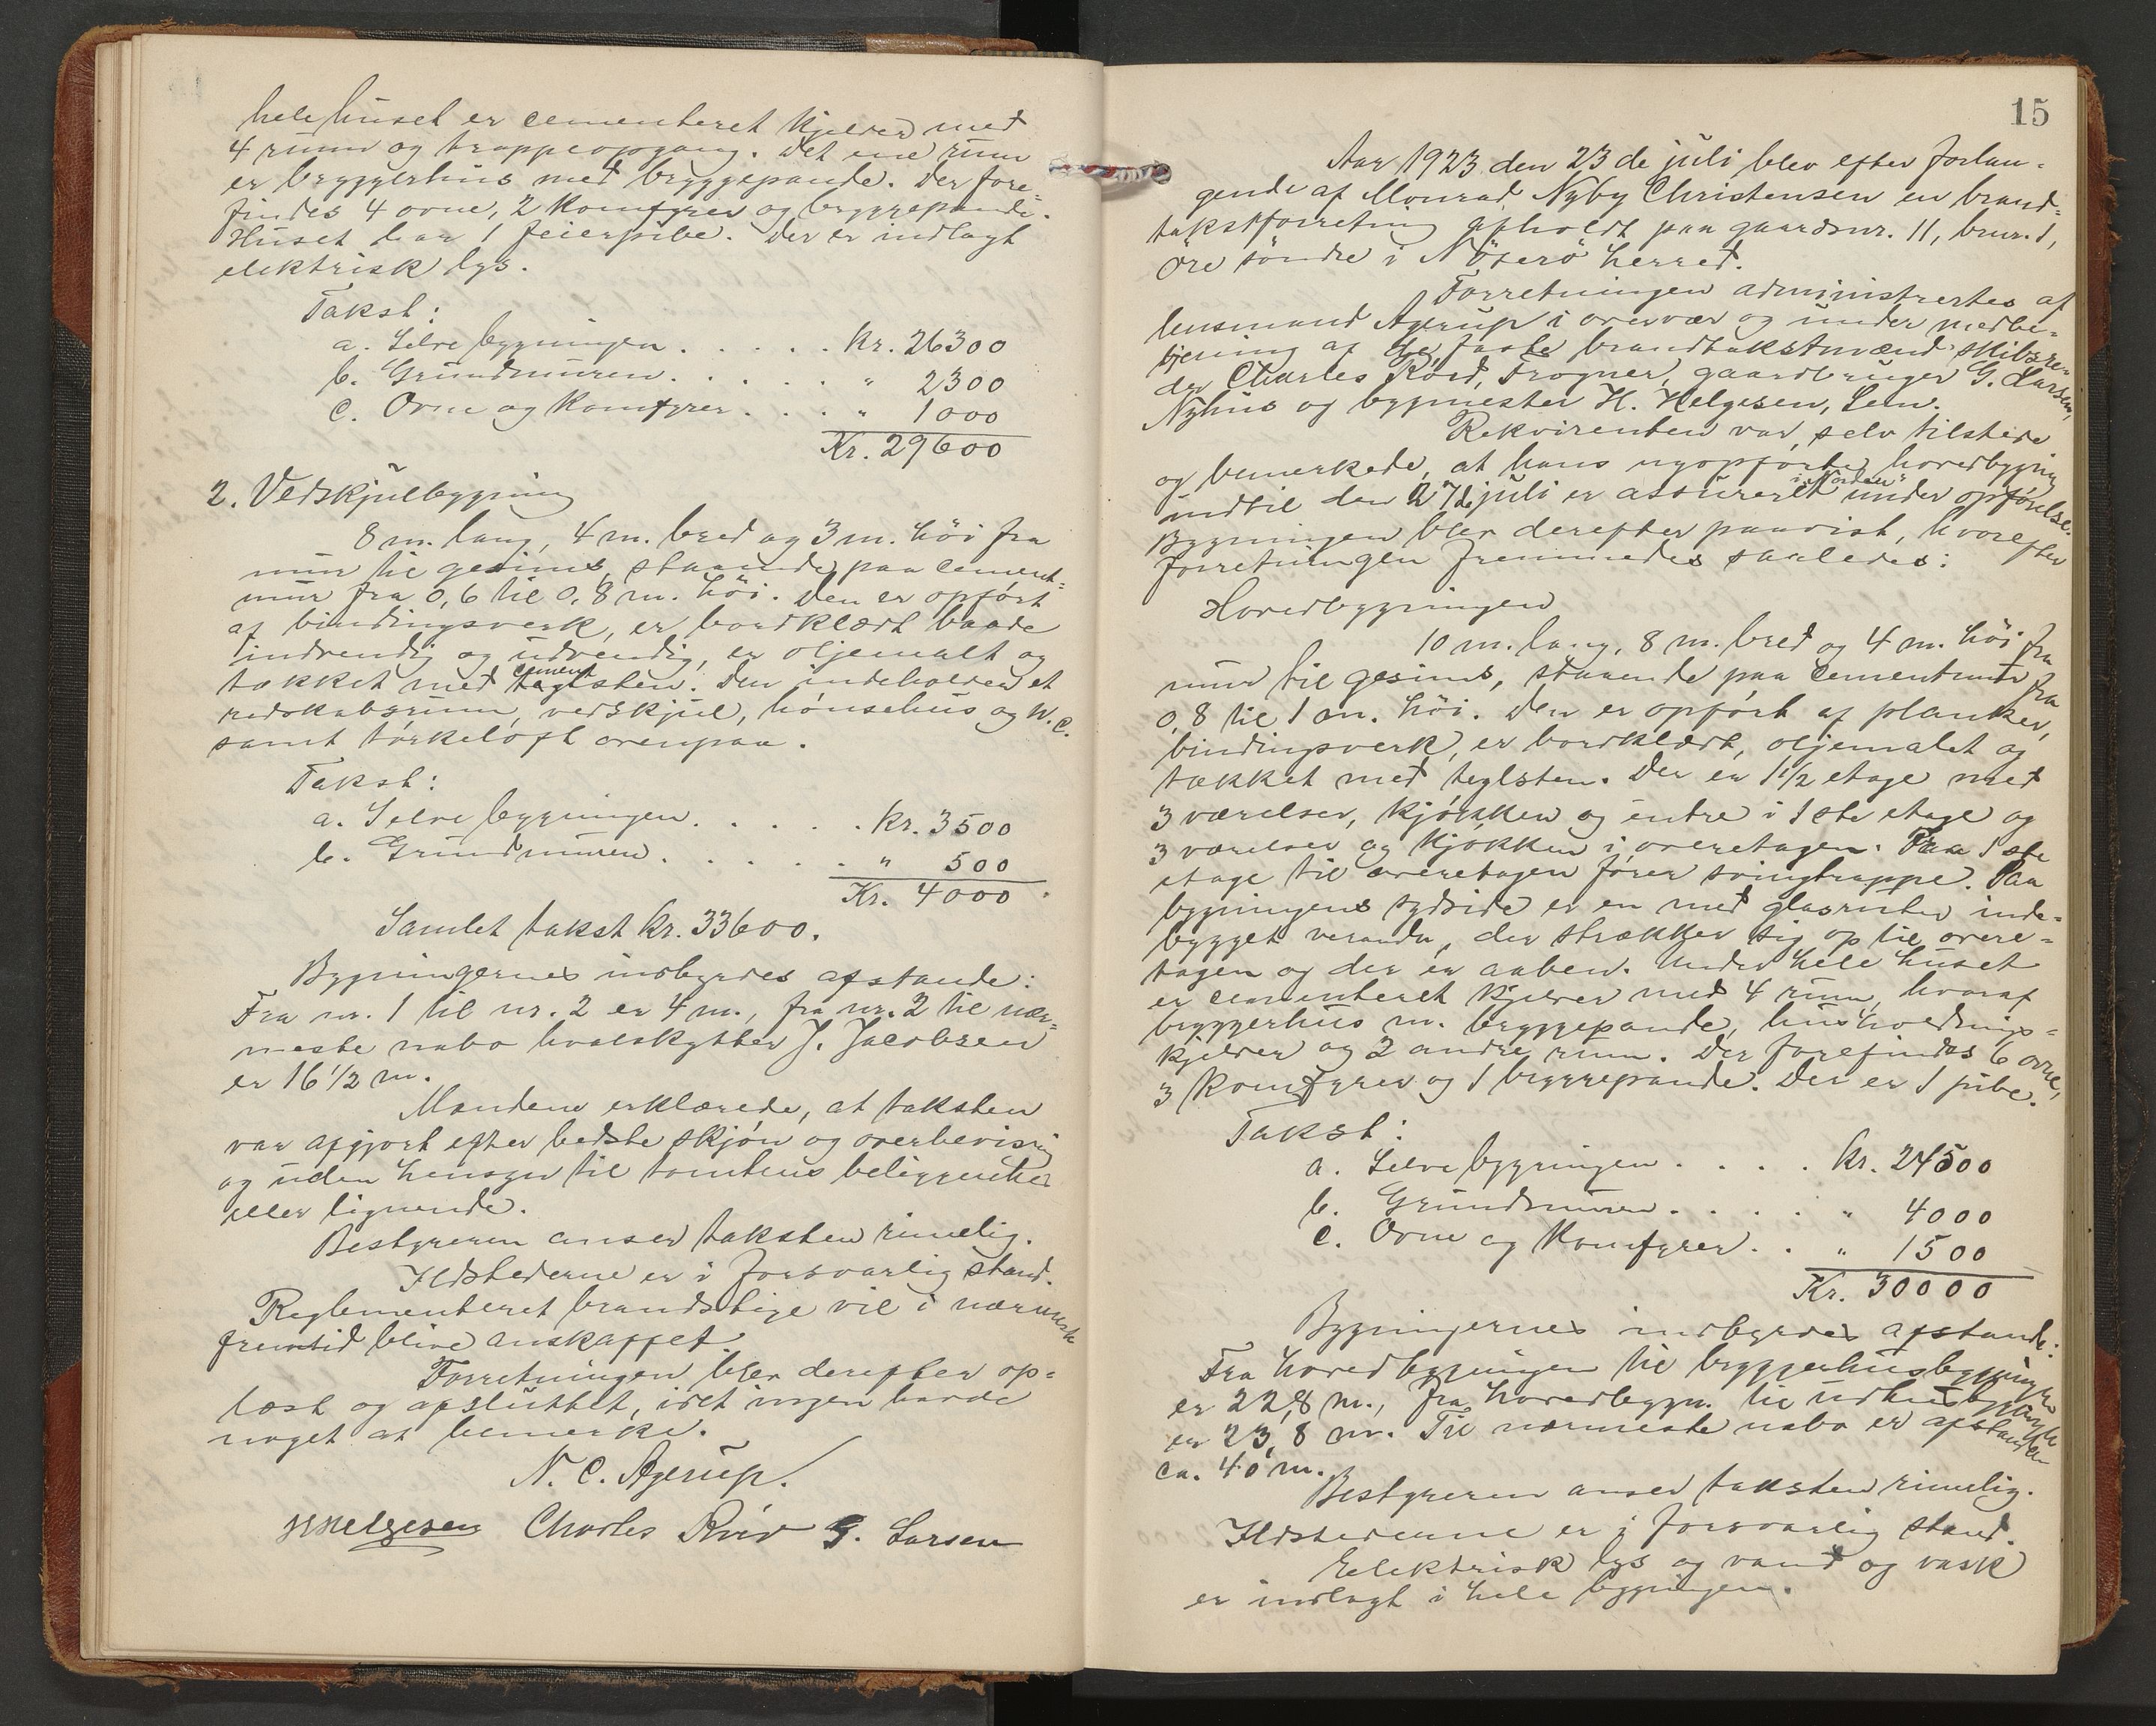 hele huset er cementeret kjelder med
4 rum og trappeopgang. Det ene rum
er bryggerhus med bryggepande. Der fore-
findes 4 ovne, 2 komfyrer og bryggepande.
Huset har 1 feierpibe. Der er indlagt
elektrisk lys.
Takst:
a. Selve bygningen . . . . . kr. 26300
b. Grundmuren . . . . . " 2300
c. Ovne og komfyrer . . . . " 1000
Kr. 29600
2. Vedskjulbygning
8 m. lang, 4 m. bred og 3 m. höi fra
mur til gesims, staaende paa cement-
mur fra 0,6 til 0,8 m. höi. Den er opført
af bindingsverk, er bordklædt baade
indvendig og udvendig, er oljemalt og
cement
takket med teglsten. Den indeholder et
redskabsrum, vedskjul, hønsehus og W.C.
samt tørkeloft ovenpaa.
Takst:
a. Selve bygningen . . . . . kr. 3500
b. Grundmuren . . . . . . " 500
Kr. 4000.
Samlet takst kr. 33600.
Bygningernes indbyrdes afstande:
Fra nr. 1 til nr. 2 er 4 m., fra nr. 2 til nær-
meste nabo hvalskytter J. Jacobsen
er 16 1/2 m.
Mændene erklærede, at taksten
var afgjort efter bedste skjøn og overbevisng
og uden hensyn til tomtens beliggenhed
eller lignende.
Bestyreren anser taksten rimelig.
Ildstederne er i forsvarlig stand.
Reglementeret brandstige vil i nærmeste
fremtid blive anskaffet.
Forretningen blev derefter op-
læst og afsluttet, idet ingen havde
noget at bemerke.
N. C. Agerup.
H Helgesen Charles Röed G. Larsen
15
Aar 1923 den 23de juli blev efter forlan-
gende af Monrad Nyby Christensen en brand-
takstforretning afholdt paa gaardsnr. 11, brnr. 1,
Öre söndre i Nöterö herred.
Forretningen administrertes af
lensmand Agerup i overvær og under medbe-
tjening af de faste brandtakstmænd skibsre-
der Charles Röed, Trogner, gaardbruger G. Larsen,
Nyhus og bygmester H. Helgesen, Sem.
Rekvirenten var selv tilstede
og bemerkede, at hans nyopførte hovedbygning
i "Norden"
indtil den 27de juli er assureret under opførelse.
Bygningen blev derefter paavist, hvorefter
forretningen fremmedes saaledes:
Hovedbygningen
10 m. lang, 8 m. bred og 4 m. höi fra
mur til gesims, staaende paa cementmur fra
0,8 til 1 m. höi. Den er opført af planker,
bindingsverk, er bordklædt, oljemalet og
takket med teglsten. Der er 1 1/2 etage med
3 værelser, kjøkken og entre i 1ste etage og
3 værelser og kjøkken i overetagen. Fra 1ste
etage til overetagen fører svingtrappe. Paa
bygningens sydside er en med glasruter inde-
bygget veranda, der strækker sig op til overe-
tagen og der er aaben. Under hele huset
er cementeret kjelder med 4 rum, hvoraf
bryggerhus m. bryggepande, husholdnings-
kjelder og 2 andre rum. Der forefindes 6 ovne,
3 komfyrer og 1 bryggepande. Der er 1 pibe.
Takst:
a. Selve bygningen . . . . kr. 24500
b. Grundmuren . . . . . " 4000
c. Ovne og komfyrer . . " 1500
Kr. 30000
Bygningernes indbyrdes afstande:
Fra hovedbygningen til bryggerhusbygningen
er 22,8 m., fra hovedbygn. til udhusbygningen
er 23,8 m. Til nærmeste nabo er afstanden
ca. 40 m.
Bestyreren anser taksten rimelig.
Ildstederne er i forsvarlig stand.
Elektrisk lys og vand og vask
er indlagt i hele bygningen.